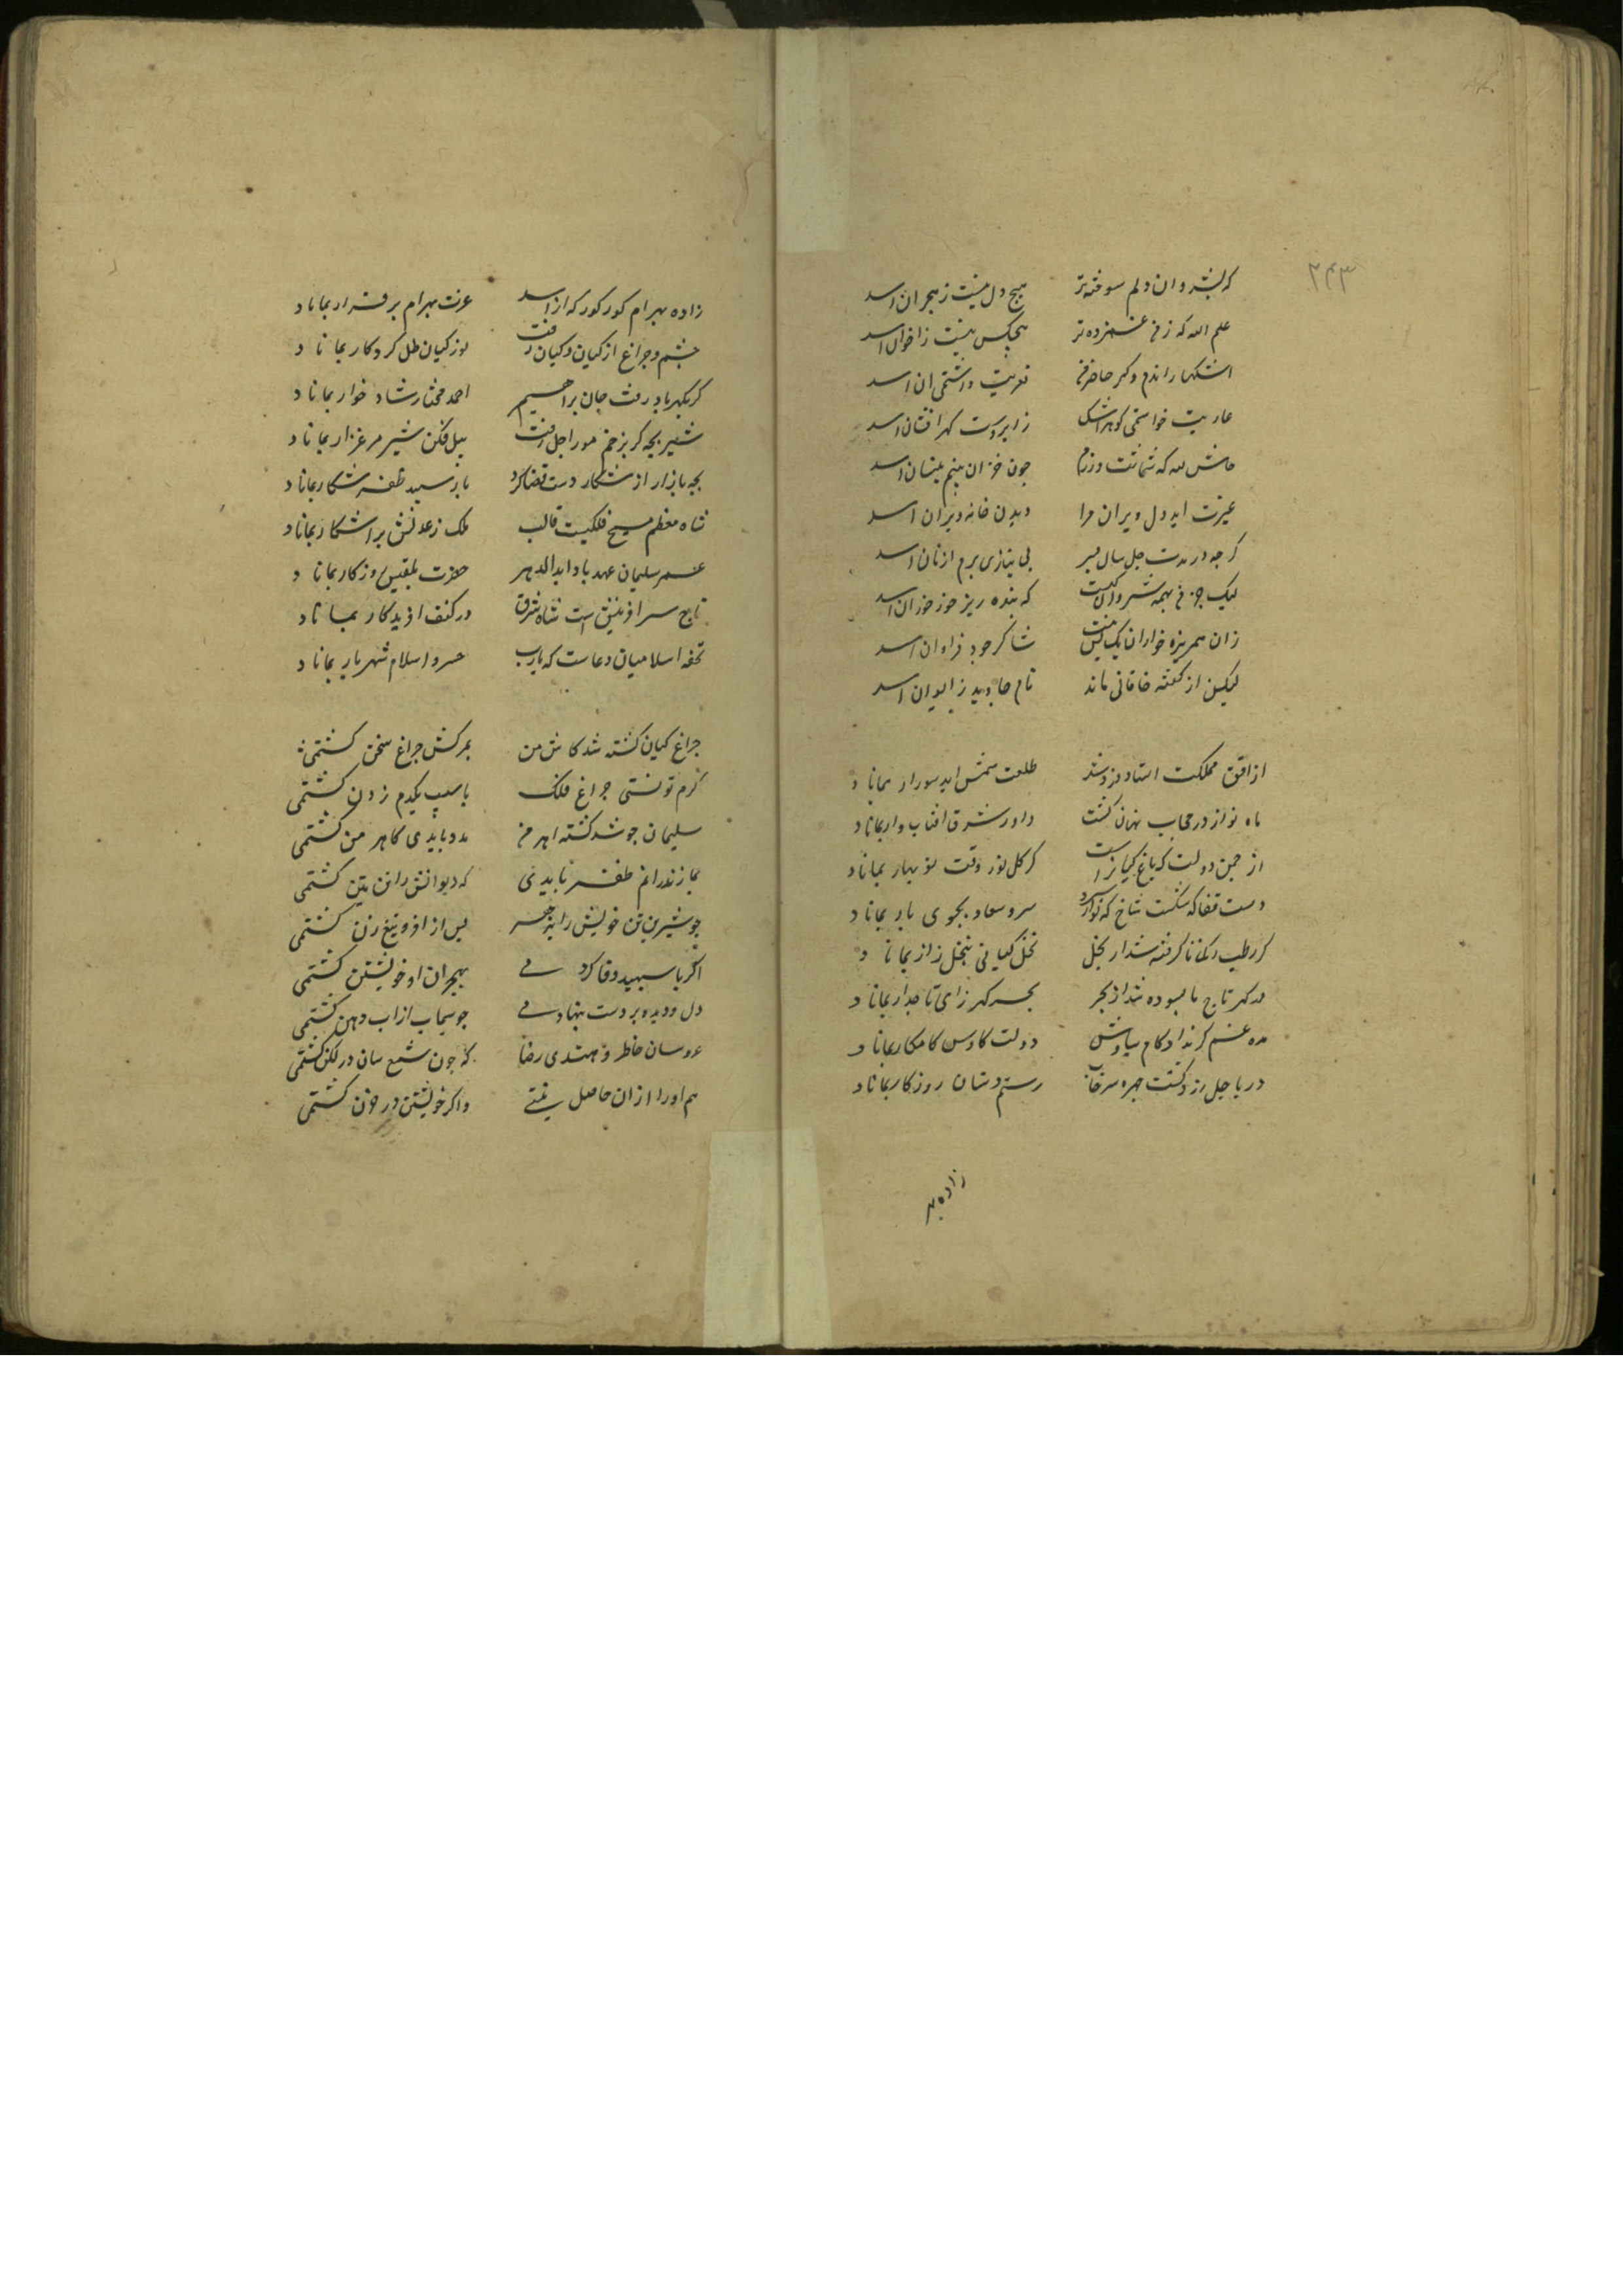 ۲۴۳
که بشروان دلم سوخته‌تر هیچ دل نیست ز هجران اسد
علم الله که ز من غمزده‌تر هیچکس نیست ز اخوان اسد
اشکها راندم و کر حاضرمی تعزیت داشتمی ان اسد
عاریت خواستمی کوهر اشک ز ابر دست کهر افشان اسد
حاش لله که شماتت ورزم چون خزان بینم نیسان اسد
عبرت اید دل ویران مرا دیدن خانه ویران اسد
کرچه در مدت چل سال بسر بی نیازی برم از نان اسد
لیک جز من بهمه شروان کیست که بنده ریزه خور خوان اسد
زان همه ریزه خواران یک کس نیست شاکر جود فراوان اسد
لیکن از کفته خاقانی ماند نام جاوید ز ایوان اسد
از افق مملکت ستاره فرو شد طلعت شمس ابد سوار بماناد
ماه نو ار در حجاب نهان کشت داور شرق افتاب وار بماناد
از چمن دولت که باغ کیانراست کر کل نو رفت نو بهار بماناد
دست قضا کر شکست شاخ که نو کرد سرو سعادت بجوی بار بماناد
کر رطب رکنا کرفته شد از نخل نخل کیانی بنخل زار بماناد
ور کهر تاج نابسوده شد از بحر بحر کهر زای تاجدار بماناد
مده غم کر نداد کام سیاوش دولت کاوس کامکار بماناد
دریا چل زرد کشت چهره سرخاب رستم دستان روزکار بماناد
زاده بهر
زاده بهرام کور کور که از اسد عزت بهرام برقرار بماناد
چشم و چراغ از کیان و کیان رفت نور کیان ظل کردکار بماناد
کر بکهر باد رفت جان براهیم احمد مختار شادخوار بماناد
شیر بچه کر بزخم مور اجل رفت پیل فکن شیر مرغزار بماناد
بچه باز ار از شکار دست قضا کرد باز سپید ظفر شکار بماناد
شاه معظم مسیح فلکیست قالب ملک ز عدلش بر اشکار بماناد
عمر سلیمان عهد باد ابد الدهر حضرت بلقیس روزکار بماناد
تاج سر افرینش است شاه شرق در کنف افریدکار بماناد
تحفه اسلامیان دعاست که یارب خسرو اسلام شهریار بماناد
چراغ کیان کشته شد کاش من بمرکش چراغ سخن کشتمی
کرم توانستی چراغ فلک باسیب یکدم زدن کشتمی
سلیمان چو شد کشته اهرمن مدد بایدی کاهرمن کشتمی
بمازندرانم ظفر بایدی که دیوانش را تن بتن کشتمی
چو شیرین تن خویش را بد خنجر پس از افرو تیغ زن کشتمی
اکر با سپهبد وفا کردمی بهجران او خویشتن کشتمی
دل و دیده بر دست بنهادمی چو سیماب از اب دهن کشتمی
عروسان خاطر دهندی رضا که چون شمع سان در لکن کشتمی
هم او را ازان حاصلی نیستی واکر خویشتن در حزن کشتمی